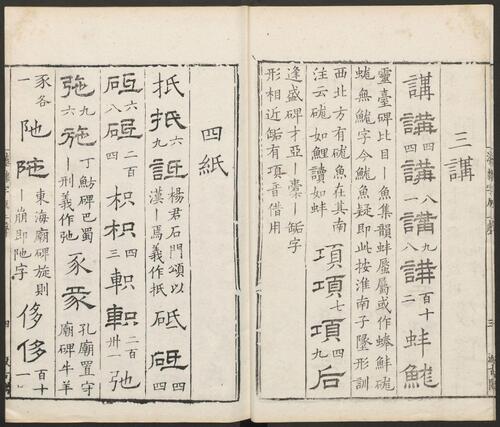 三講
講講四講一八講八九講百十二蚌
靈臺碑比目丨魚集韻蚌蜃屬或作蜯鮮硥
無字今魚疑即此按淮南子墬形訓
西北方有硥魚在其南
注云硥如鯉讀如蚌
項項七項四九后
逢盛碑才亞丨丨缿字
形相近缿有項音借用
四紙
抵抵六九
楊君石門頌以
漢丨焉義作抵
砥砥四四
六八二百四枳枳四三軹軹二百卅一弛
九六
丁魴碑巴蜀
丨刑義作弛
豕豕
孔廟置守
廟碑牛羊
豕各一
阤阤
東海廟碑旋則
丨崩即阤字
侈侈百十一